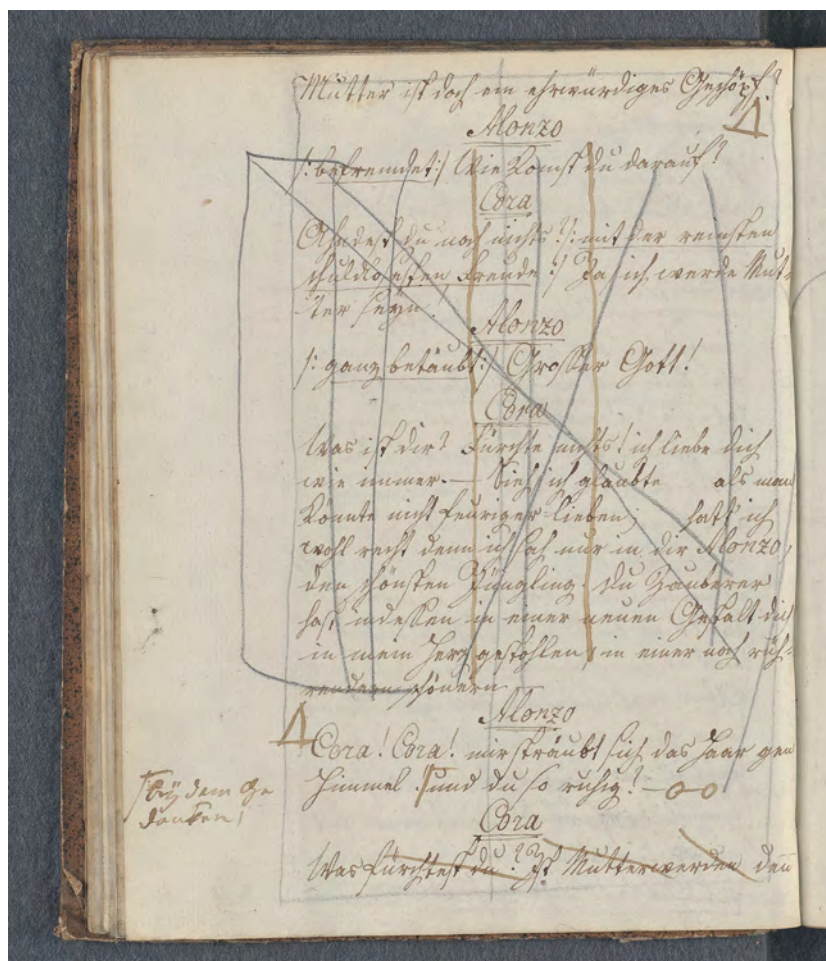 Mutter ist doch ein ehrwürdiges Geschöpf?
Alonzo
/: befremdet :/ Wie komst du darauf?
Cora
Ahndest du noch nichts? /: mit der reinsten
schuldlosesten Freude :/ Ja ich werde Mut-
ter seyn!
Alonzo
/: ganz betäubt :/ Grosser Gott!
Cora
Was ist dir? Fürchte nichts! ich liebe dich
wie immer. — Sieh ich glaubte als man
könnte nicht feuriger lieben; hatt' ich
wohl recht denn ich sah nur in dir Alonzo,
den schönsten Jüngling. Du Zauberer
hast indessen in einer neuen Gestalt dich
in mein Herz gestohlen, in einer noch rüh-
rendern schönern
Alonzo
Cora! Cora! mir sträubt sich das Haar gen
Himmel und du so ruhig? —
bey dem Ge
danken,
Cora
Was fürchtest du? Ist Mutterwerden den̅